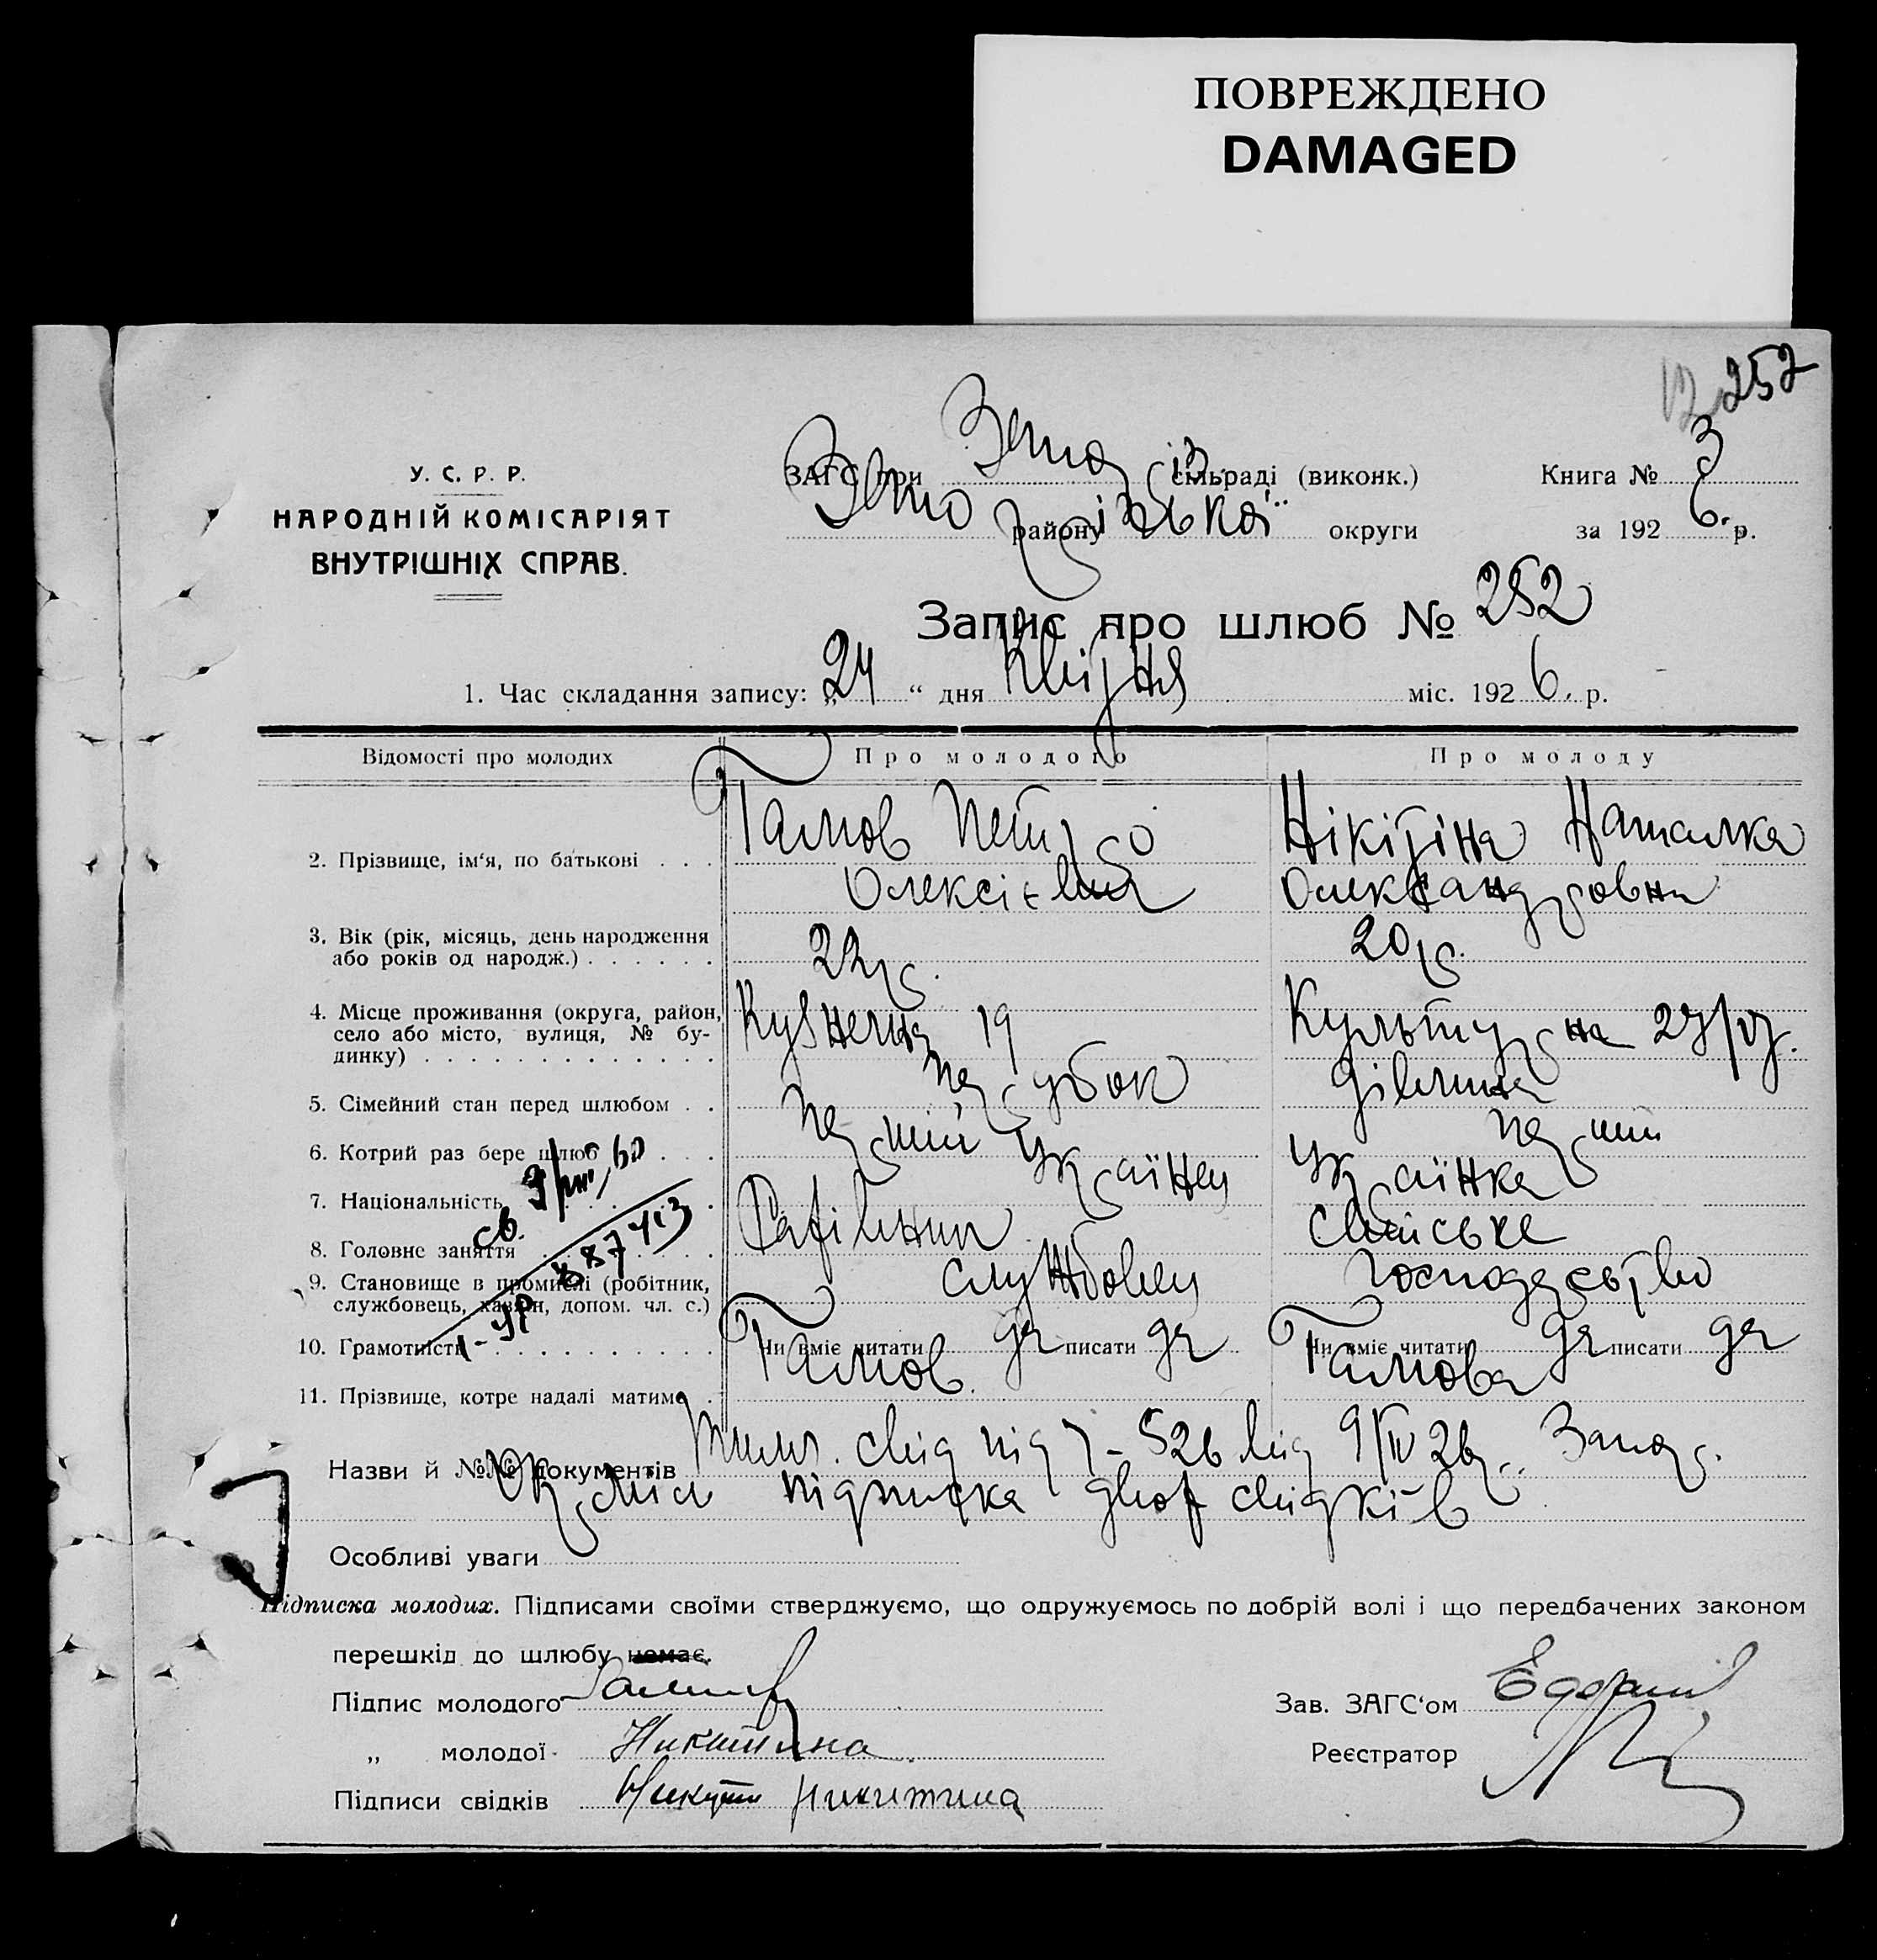 ПОВРЕЖДЕНО
DAMAGED
252
У. С. Р. Р.
НАРОДНІЙ КОМІСАРІЯТ
ВНУТРІШНІХ СПРАВ.
ЗАГС при сільраді (виконк.) Книга № 3
району округи за 192 6. р.
Запис про шлюб № 252
1. Час складання запису: „ 24 “ дня Квітня міс. 192 6. р.
Відомості про молодих Про молодого Про молоду
2. Прізвище, ім‘я, по батькові . . . Галлов Петро Нікітіна Наталка
Олексієвич Олександровна
3. Вік (рік, місяць, день народження
або років од народж.) . . . . . . 22 р. 20 р.
4. Місце проживання (округа, район,
село або місто, вулиця, № бу-
динку) . . . . . . . . . . . . . . Кузнечна 19 Культурна
5. Сімейний стан перед шлюбом . . парубок дівчина
6. Котрий раз бере шлюб . . . перший перший
7. Національність Українец Українка
8. Головне заняття
9. Становище в промислі (робітник,
службовець, хазяїн, допом. чл. с.) службовец господарство
св. 9/VIII, 60
I-УР 887413
10. Грамотність . . . . . . . . . . Чи вміє читати да писати да Чи вміє читати да писати да
11. Прізвище, котре надалі матиме . Галлов. Галлова
Назви й №№ документів від 9/IV 26 р.
підписка двох свідків
Особливі уваги
Підписка молодих. Підписами своїми стверджуємо, що одружуємось по добрій волі і що передбачених законом
перешкід до шлюбу немає.
Підпис молодого Зав. ЗАГС‘ом
„ молодої Никитина Реєстратор
Підписи свідків Никитина